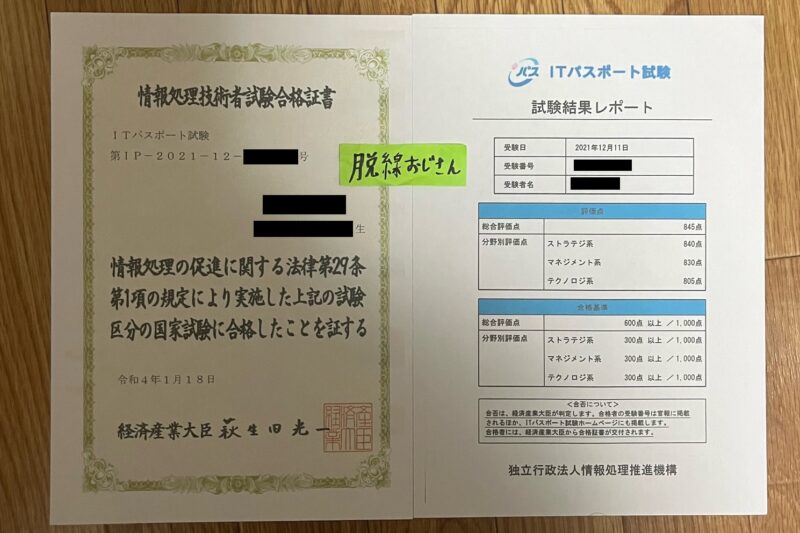 情報処理技術者試験合格証書
ITパスポート試験
第IP-2021-12- 号
生
情報処理の促進に関する法律第29条
第1項の規定により実施した上記の試験
区分の国家試験に合格したことを証する
令和4年1月18日
経済産業大臣 萩生田光一
脱線おじさん
パス ITパスポート試験
試験結果レポート
受験日 2021年12月11日
受験番号
受験者名
評価点
総合評価点 845点
分野別評価点 ストラテジ系 840点
マネジメント系 830点
テクノロジ系 805点
合格基準
総合評価点 600点 以上 / 1,000点
分野別評価点 ストラテジ系 300点 以上 / 1,000点
マネジメント系 300点 以上 / 1,000点
テクノロジ系 300点 以上 / 1,000点
<合否について>
合否は、経済産業大臣が判定します。合格者の受験番号は官報に掲載
されるほか、ITパスポート試験ホームページにも掲載します。
合格者には、経済産業大臣から合格証書が交付されます。
独立行政法人情報処理推進機構